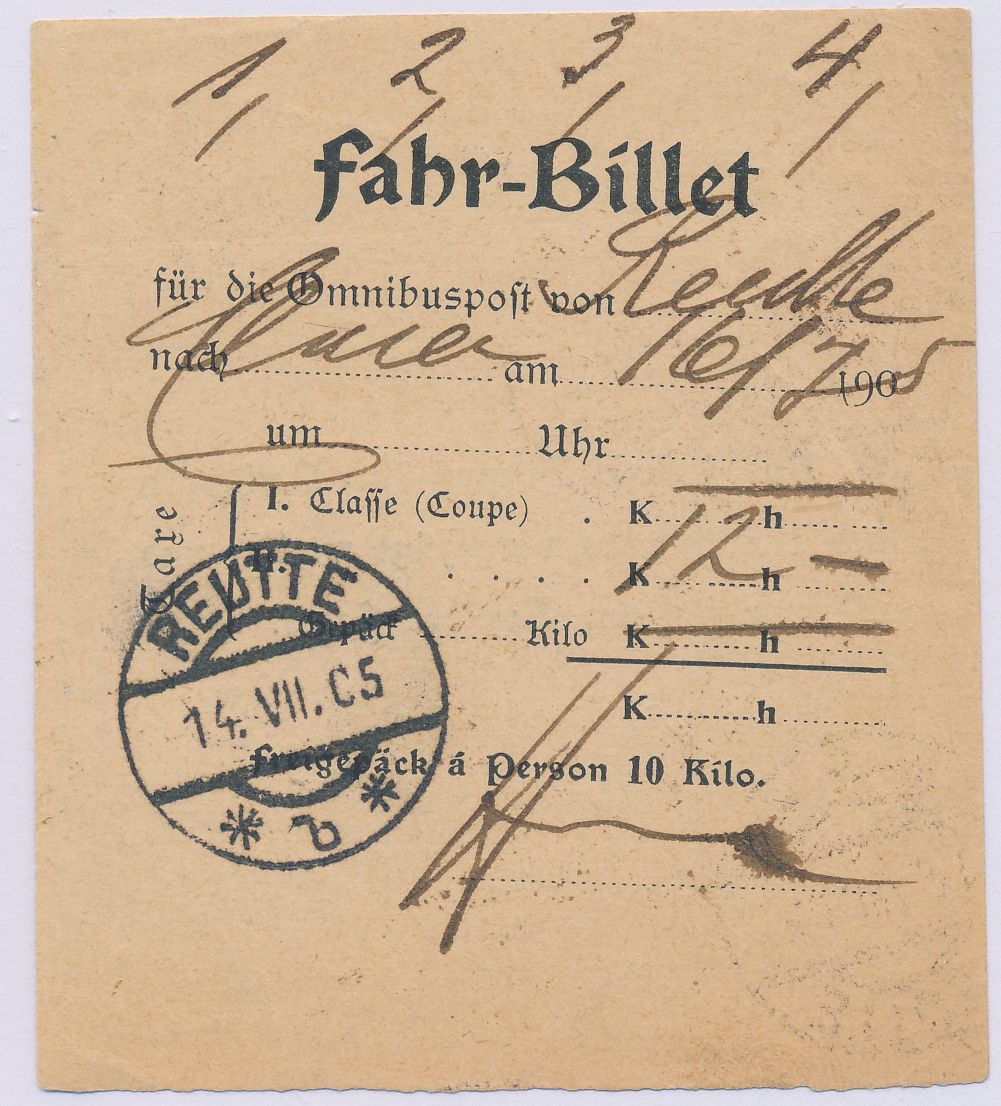 1, 2, 3, 4,
Fahr-Billet
für die Omnibuspost von Reutte
nach am 16/7 1905
um Uhr
Taxe
I. Classe (Coupe) . K h
II. . . . . K 12 h —
Gepäck Kilo K h
K h
Freigepäck á Person 10 Kilo.
REUTTE
14. VII. 05
* b *